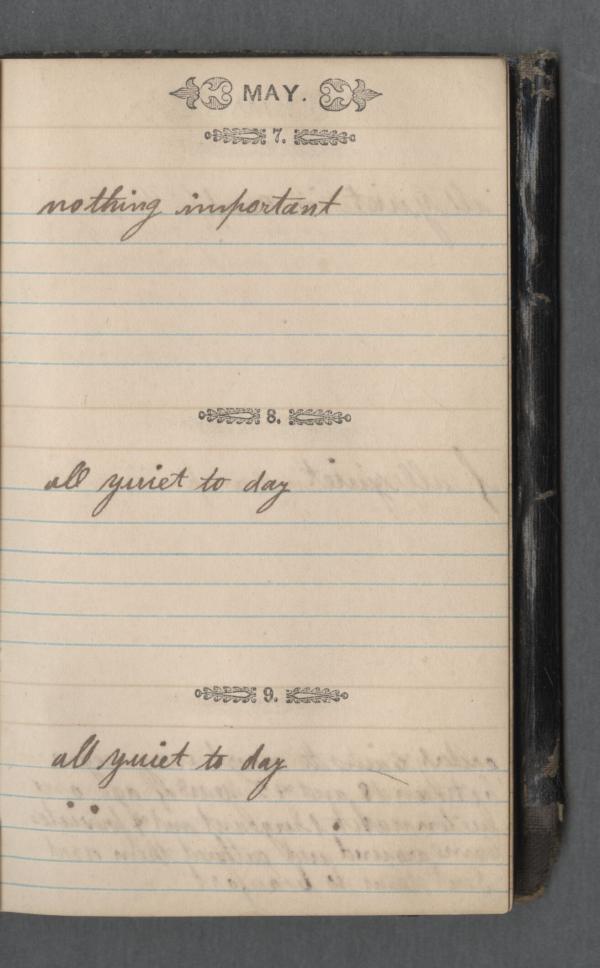 MAY.
7.
nothing important
8.
all quiet to day
9.
all quiet to day